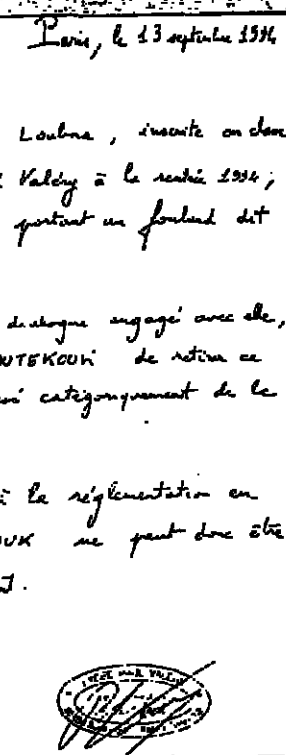 Paris, le 13 septembre 1994
Loubna, inscrite en classe
Valéry à la rentrée 1994;
portant un foulard dit
dialogue engagé avec elle,
de retirer ce
catégoriquement de le
à la réglementation en
ne peut donc être